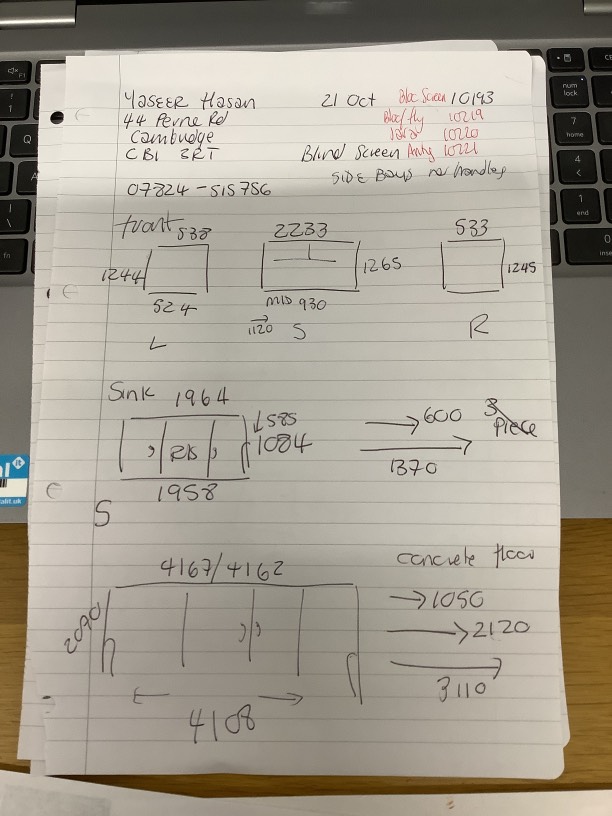 Yaseer Hasan 21 Oct Bloc Screen 10193
44 Perne Rd Bloc/fly 10219
Cambudge 10220
CB1 3RT Blind Screen Anthy 10221
SIDE BAYS no handles
07824-515756
front 538 2233 533
1244 1265 1245
524 MID 930
1120
L S R
Sink 1964
585 600 3
1084 Piece
1370
1958
S
4167/4162 concrete floor
2090 1050
2120
3110
4108